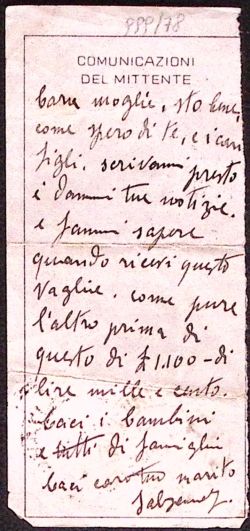 999/78
COMUNICAZIONI
DEL MITTENTE
Cara moglie, sto bene,
come spero di te, e i cari
figli, scrivami presto
e dammi tue notizie.
e fammi sapere
quando ricevi questo
vaglia. come pure
l'altro prima di
questo di £1.100 - di
lire mille e cento.
baci i bambini
e tutti di famiglia
baci caro tuo marito